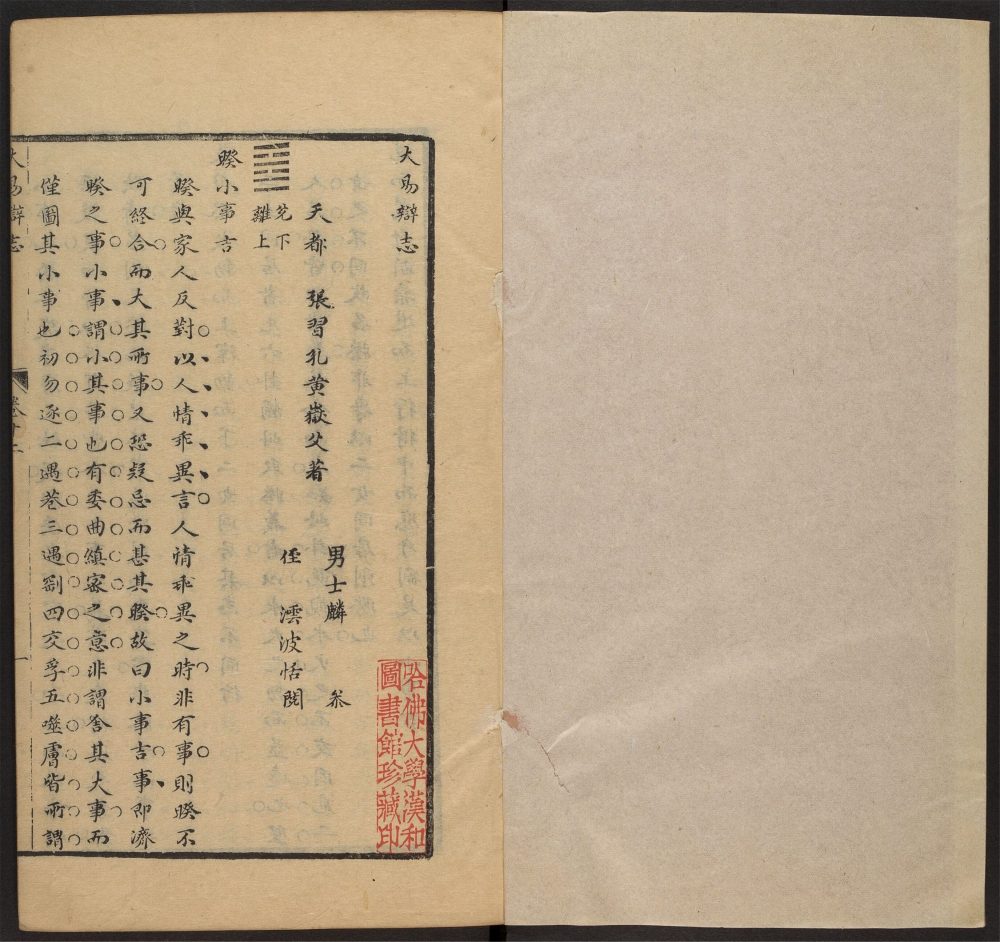 大易辯志
天都 張習孔黃嶽父著
男士麟 叅
侄 澐波恬閱
兌下
離上
睽小事吉
睽與家人反對以人情乖異言人情乖異之時非有事則睽不
可終合而大其所事又恐疑忌而甚其睽故曰小事吉事即濟
睽之事小事謂小其事也有委曲縝宻之意非謂舍其大事而
僅圖其小事也初勿逐二遇巷三遇劓四交孚五噬膚皆所謂
大易辯志 卷十二 一
哈佛大學漢和
圖書館珍藏印